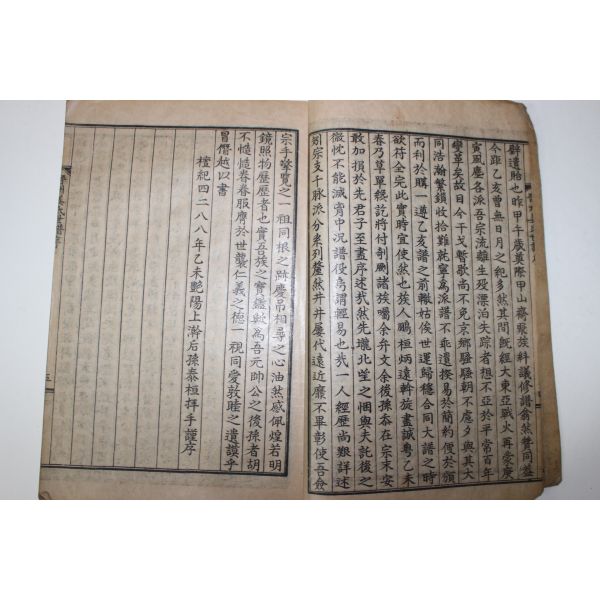 辟遺貽也昨甲午歲奠際甲山齋聚族科議修譜僉然贊同蓋
今距乙亥曹無日月之紀多然其間既經大東亞戰火再蒙庚
寅風塵各派吾宗流離生殁漂泊失踪者想不亞於平常百年
變革矣故目今干戈暫歇尚不免京鄉騷騷朝不慮夕與其大
同浩瀚繁鎖收拾難就寧爲派譜不乖遺揆易於簡約便於頒
而利於購一遵乙亥譜之前轍姑俟世運歸穩合同大譜之時
欲符全完此實時宜使然也族人鵬桓炳遠斡旋盡誠粤乙未
春乃草單繕訖將付剞劂諸族囑余弁文余後孫忝在宗末安
敢加損於先君子至盡序述哉然先壠北望之悃與夫託後之
微忱不能滅膏中况譜役焉謂輕易也哉一人經歷尚艱詳述
矧宗支千脉派分糸列釐然井井屢代遠近靡不畢彰使吾僉
宗手擎覽之一祖同根之跡慶吊相尋之心油然感佩煌若明
鏡照物歷歷者也實吾族之寶鑑歟爲吾元帥公之後孫者胡
不慥慥眷眷服膺於世襲仁義之德一視同愛敦睦之遺謨乎
冒僭越以書
檀紀四二八八年乙未艷陽上澣后孫泰桓拜手謹序
氏世譜序
三